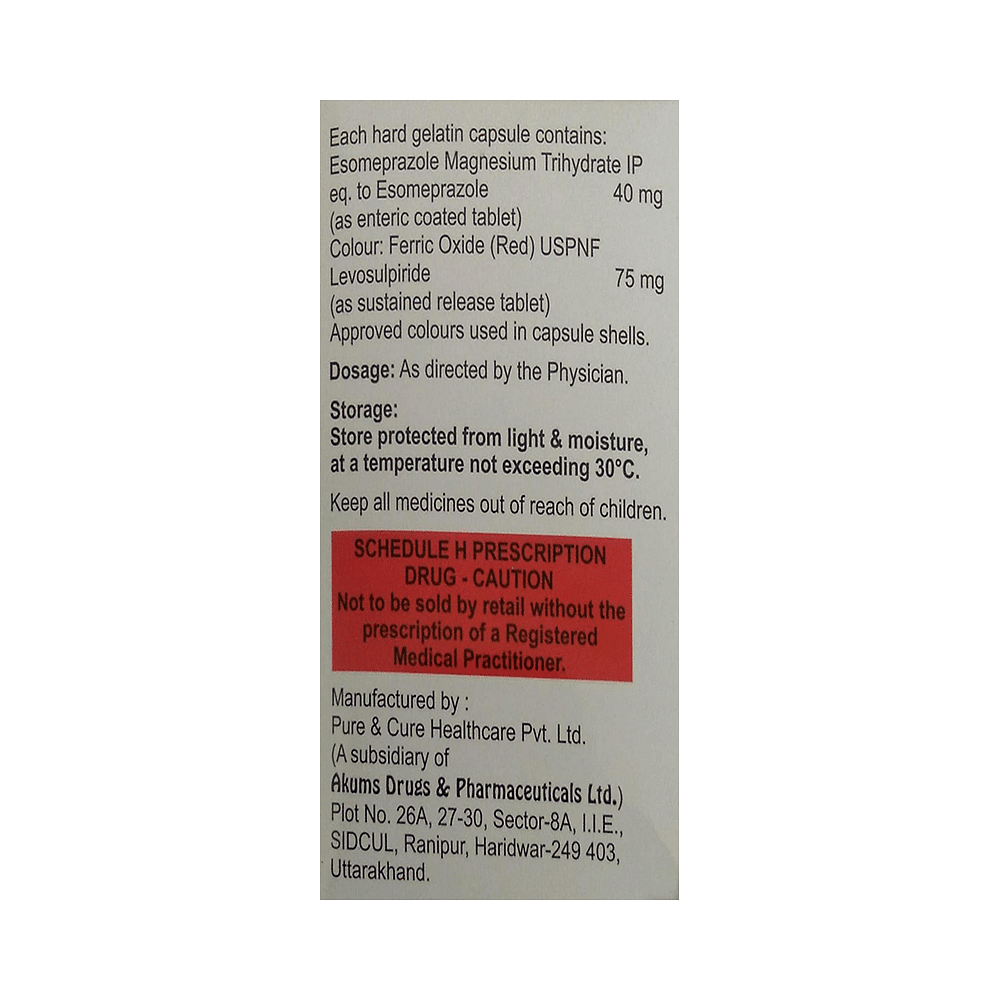 Each hard gelatin capsule contains:
Esomeprazole Magnesium Trihydrate IP
eq. to Esomeprazole 40 mg
(as enteric coated tablet)
Colour: Ferric Oxide (Red) USPNF
Levosulpiride 75 mg
(as sustained release tablet)
Approved colours used in capsule shells.
Dosage: As directed by the Physician.
Storage:
Store protected from light & moisture,
at a temperature not exceeding 30°C.
Keep all medicines out of reach of children.
SCHEDULE H PRESCRIPTION
DRUG - CAUTION
Not to be sold by retail without the
prescription of a Registered
Medical Practitioner.
Manufactured by :
Pure & Cure Healthcare Pvt. Ltd.
(A subsidiary of
Akums Drugs & Pharmaceuticals Ltd.)
Plot No. 26A, 27-30, Sector-8A, I.I.E.,
SIDCUL, Ranipur, Haridwar-249 403,
Uttarakhand.